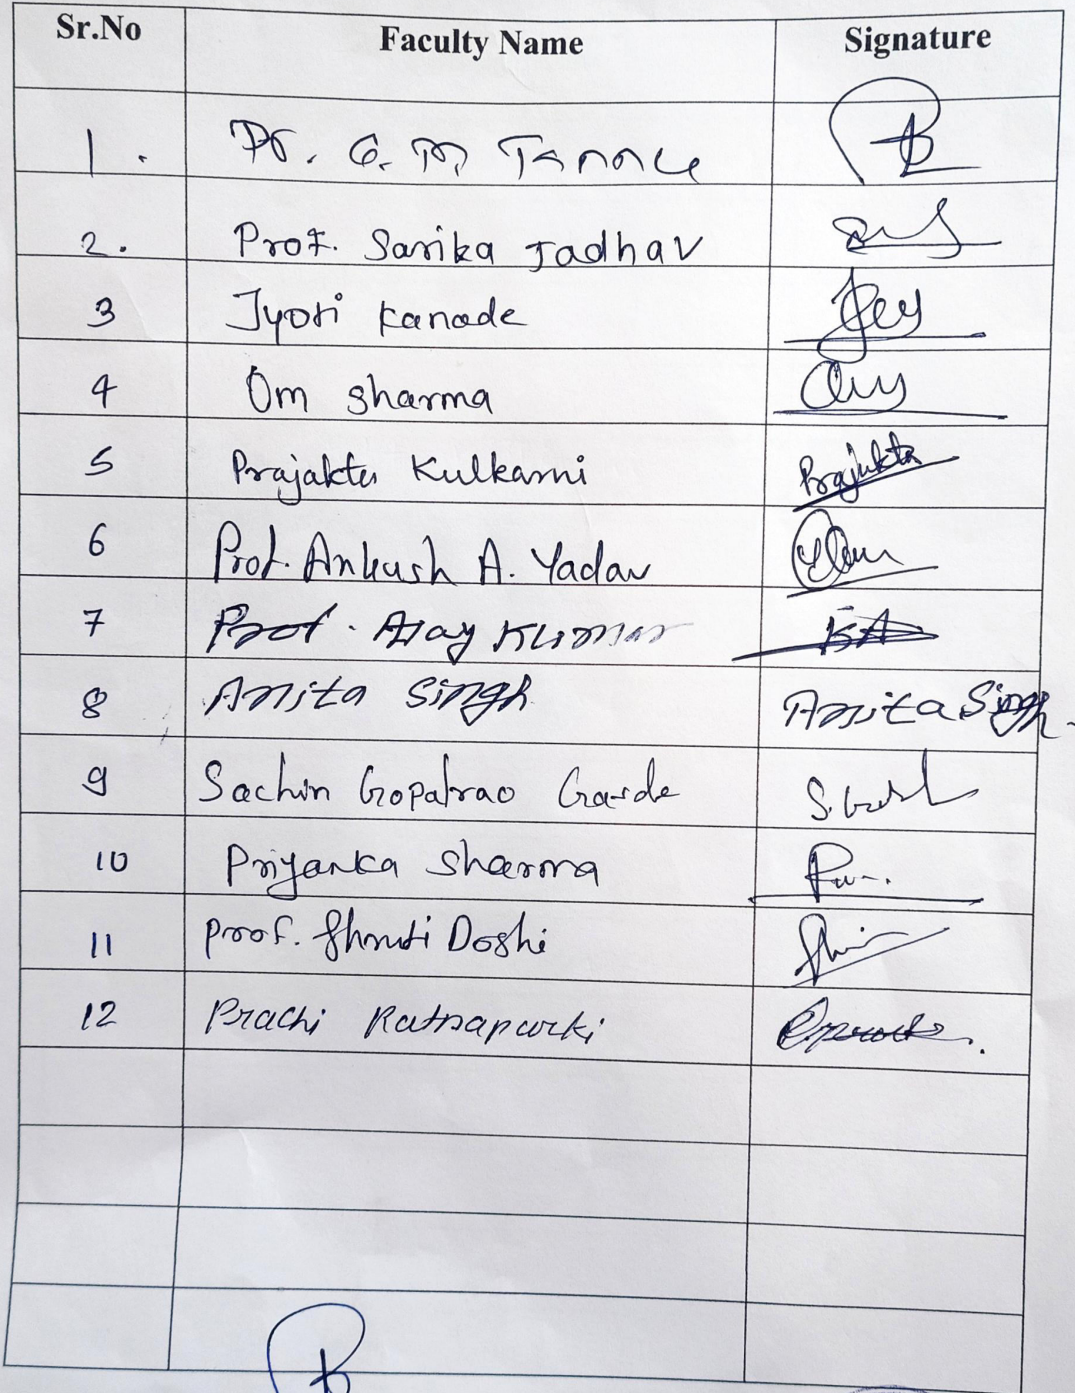 Sr.No Faculty Name Signature
1. Dr. G. M
2. Prof. Sarika Jadhav
3 Jyoti Kanade
4 Om Sharma
5 Prajakta Kulkarni Prajakta
6 Prof. Ankush A. Yadav
7 Prof. Ajay Kumar KA
8 Anita Singh Anita Singh.
9 Sachin Gopalrao Garde
10 Priyanka Sharma
11 Prof. Shruti Doshi
12 Prachi Ratnaparki